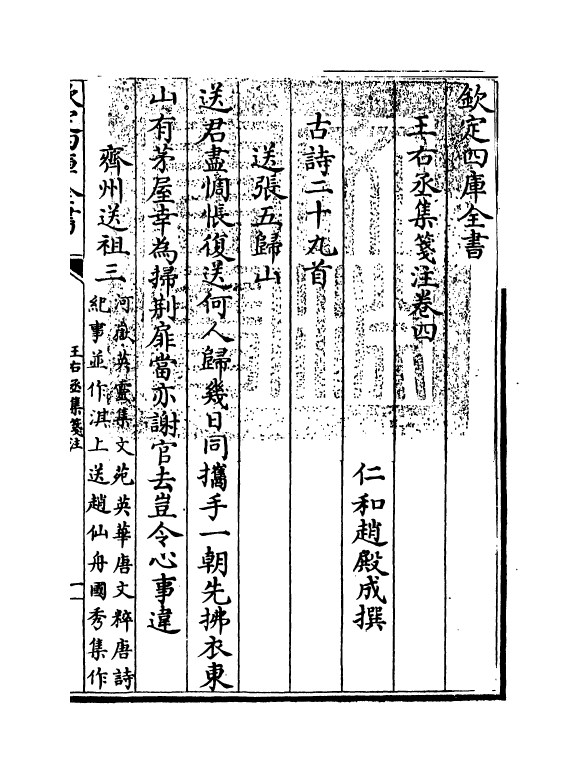 欽定四庫全書
王右丞集箋注卷四
仁和趙殿成撰
古詩二十九首
送張五歸山
送君盡惆悵復送何人歸幾日同攜手一朝先拂衣東
山有茅屋幸為掃荆扉當亦謝官去豈令心事違
齊州送祖三
河嶽英靈集文苑英華唐文粹唐詩
紀事並作淇上送趙仙舟國秀集作
欽定四庫全書
王右丞集箋注
一